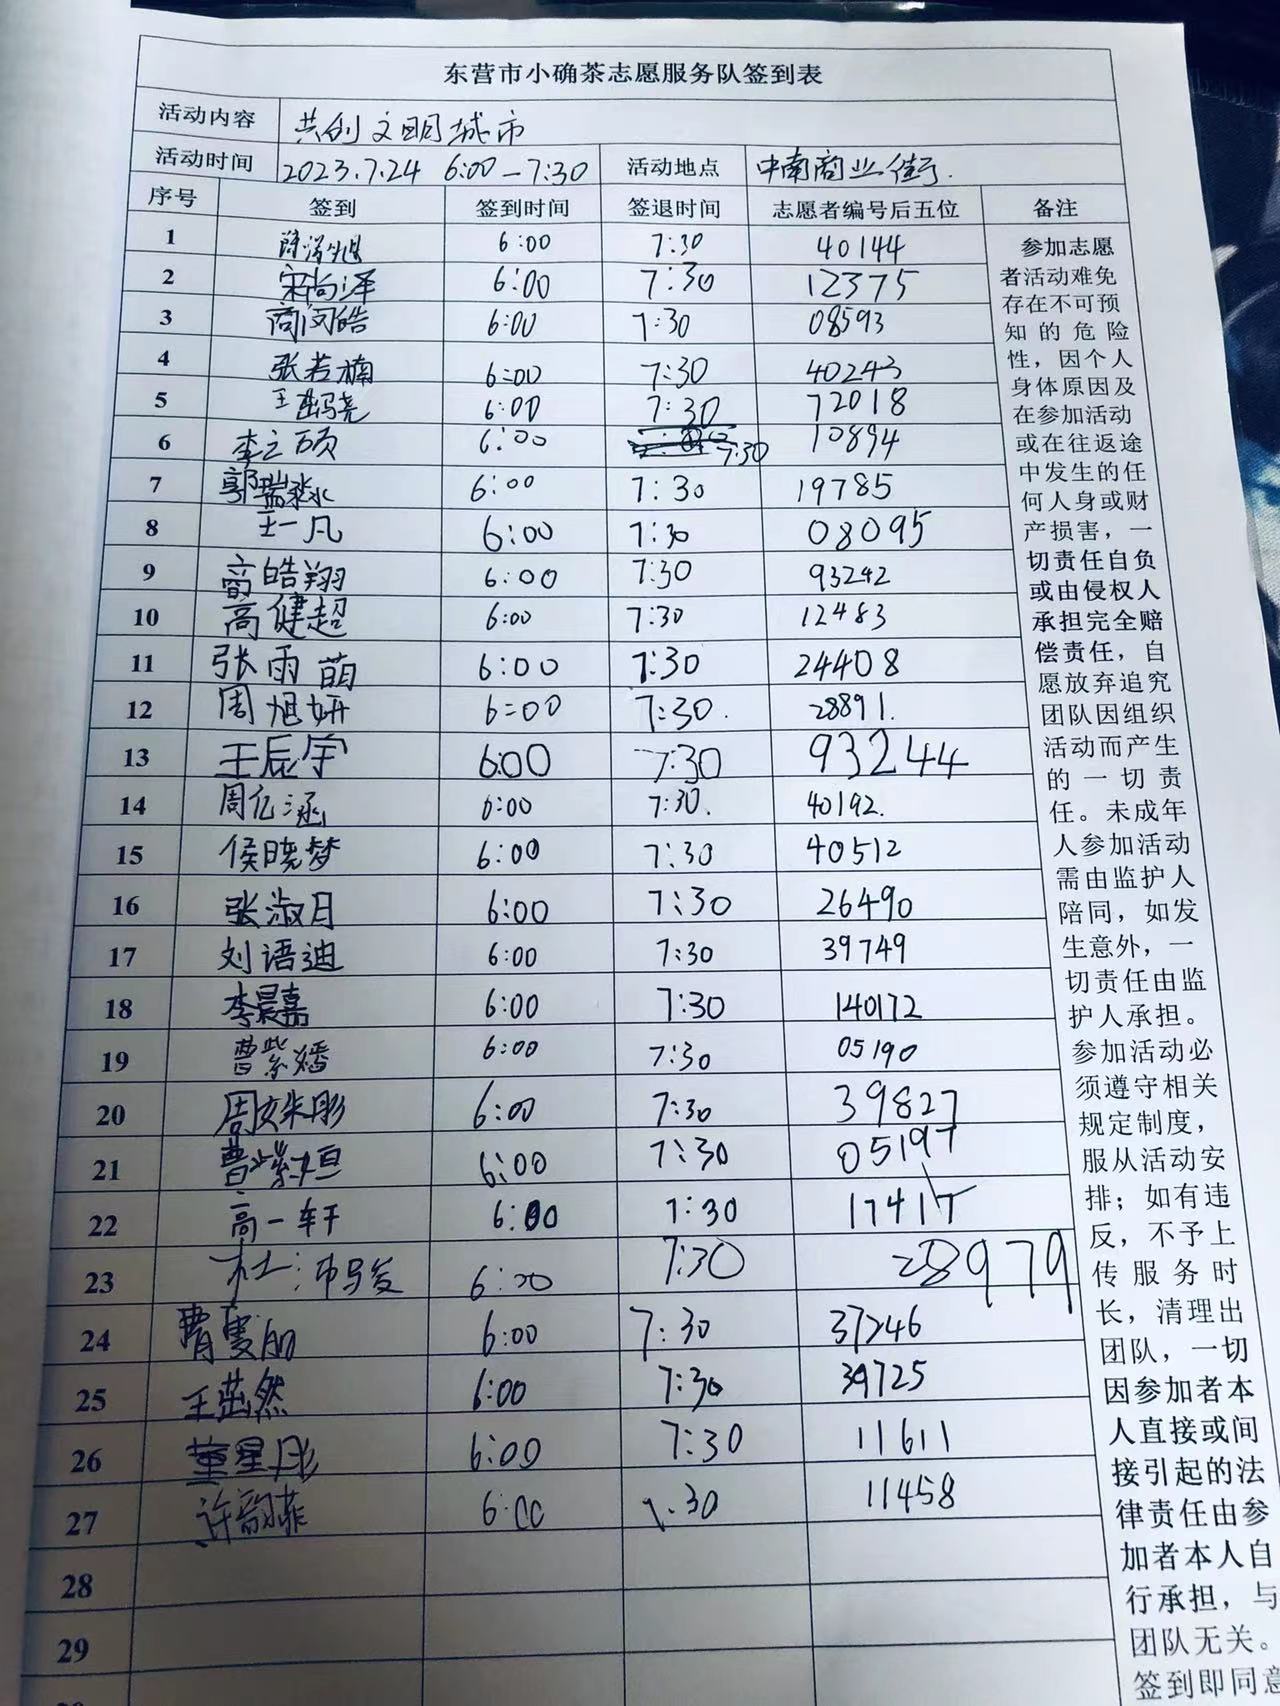 东营市小确茶志愿服务队签到表
活动内容 共创文明城市
活动时间 2023.7.24 6:00-7:30 活动地点 中南商业街.
序号 签到 签到时间 签退时间 志愿者编号后五位 备注
1 6:00 7:30 40144
2 宋尚泽 6:00 7:30 12375
3 商闵皓 6:00 7:30 08593
4 张若楠 6:00 7:30 40243
5 王 6:00 7:30 72018
6 李之颀 6:00 7:30 10894
7 郭瑞淼 6:00 7:30 19785
8 王一凡 6:00 7:30 08095
9 高皓翔 6:00 7:30 93242
10 高健超 6:00 7:30 12483
11 张雨萌 6:00 7:30 24408
12 周旭妍 6:00 7:30. 28891.
13 王辰宇 6:00 7:30 93244
14 周亿涵 6:00 7:30. 40192.
15 侯晓梦 6:00 7:30 40512
16 张淑月 6:00 7:30 26490
17 刘语迪 6:00 7:30 39749
18 李晨嘉 6:00 7:30 140172
19 曹紫嬉 6:00 7:30 05190
20 周姝彤 6:00 7:30 39827
21 曹紫垣 6:00 7:30 05197
22 高一轩 6:00 7:30 17417
23 6:00 7:30 28979
24 6:00 7:30 37246
25 王茁然 6:00 7:30 39725
26 董星彤 6:00 7:30 11611
27 许韵菲 6:00 7:30 11458
28
29
参加志愿
者活动难免
存在不可预
知的危险
性，因个人
身体原因及
在参加活动
或在往返途
中发生的任
何人身或财
产损害，一
切责任自负
或由侵权人
承担完全赔
偿责任，自
愿放弃追究
团队因组织
活动而产生
的一切责
任。未成年
人参加活动
需由监护人
陪同，如发
生意外，一
切责任由监
护人承担。
参加活动必
须遵守相关
规定制度，
服从活动安
排；如有违
反，不予上
传服务时
长，清理出
团队，一切
因参加者本
人直接或间
接引起的法
律责任由参
加者本人自
行承担，与
团队无关。
签到即同意